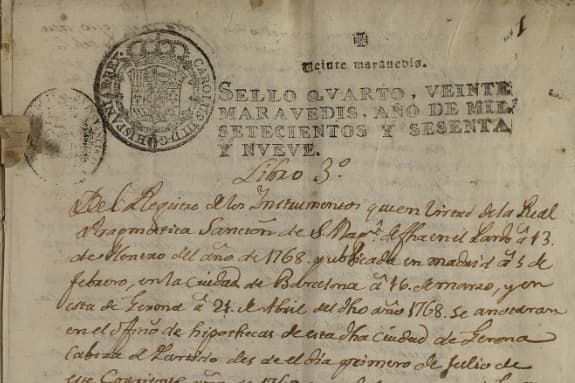 1
Veinte marauedis.
CAROLVS III D G HISPANIAR REX
SELLO QVARTO, VEINTE
MARAVEDIS, AÑO DE MIL
SETECIENTOS Y SESENTA
Y NVEVE.
Libro 3º
Del Registro de los Instrumentos que en virtud de la Real
Pragmatica Sancion de S. Magd. dha en el Pardo â 13.
de Henero del año de 1768. publicada en madrid â 5 de
febrero, en la Ciudad de Barcelona â 16. de marzo, y en
esta de Gerona â 21. de Abril del dho año 1768. se anotaran
en el officio de hipothecas de esta dha Ciudad de Gerona
Cabeza de Partido des de el dia primero de Julio de
este Corriente año de